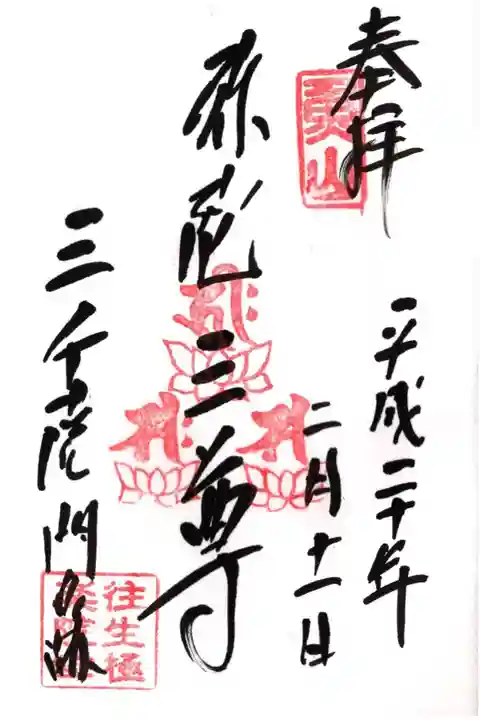 奉拝
魚山
平成二十年
二月十一日
弥陀三尊
三千院門跡
往生極